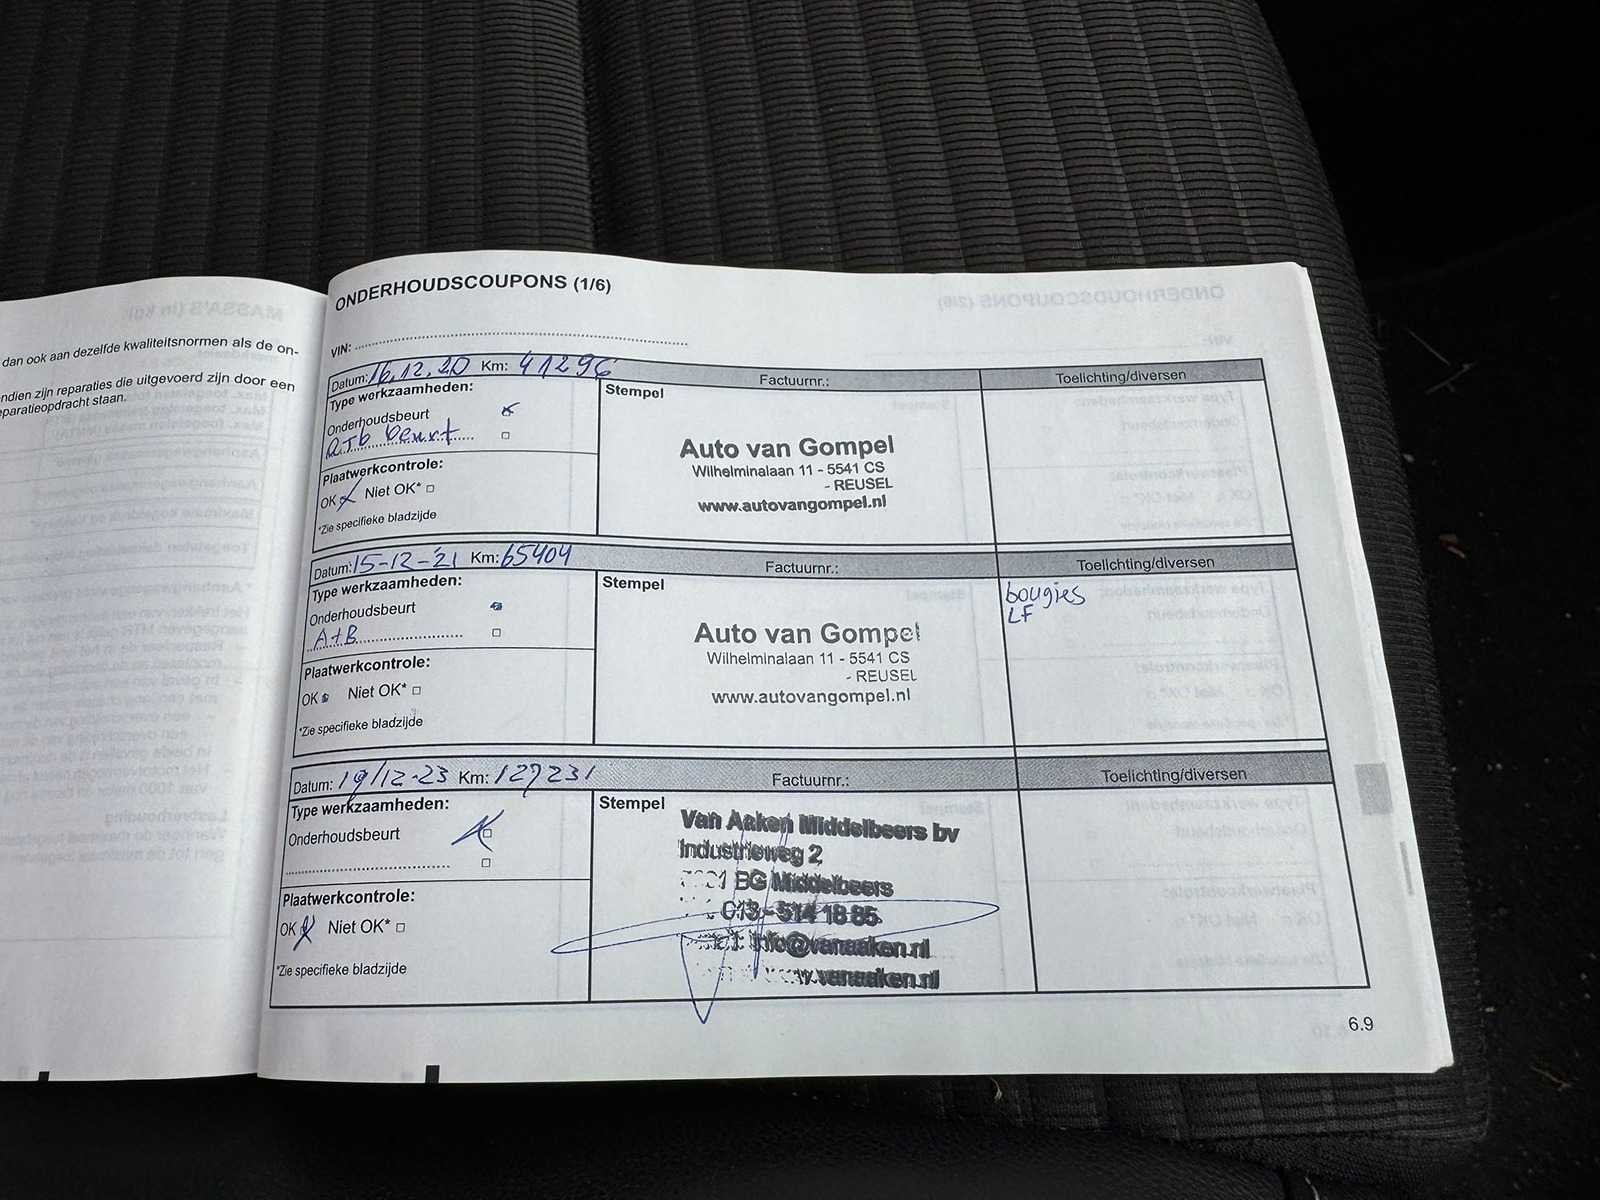 dan ook aan dezelfde kwaliteitsnormen als de on-
ndien zijn reparaties die uitgevoerd zijn door een
eparatieopdracht staan.
ONDERHOUDSCOUPONS (1/6)
VIN:
Datum: 16.12.20 Km: 41296 Factuurnr.: Toelichting/diversen
Type werkzaamheden:
Stempel
Onderhoudsbeurt
Plaatwerkcontrole:
OK Niet OK*
*Zie specifieke bladzijde
Auto van Gompel
Wilhelminalaan 11 - 5541 CS
- REUSEL
www.autovangompel.nl
Datum: 15-12-'21 Km: 65404 Factuurnr.: Toelichting/diversen
Type werkzaamheden:
Stempel
Onderhoudsbeurt
A+B
Plaatwerkcontrole:
OK Niet OK*
*Zie specifieke bladzijde
Auto van Gompel
Wilhelminalaan 11 - 5541 CS
- REUSEL
www.autovangompel.nl
bougies
LF
Datum: 19/12-23 Km: 127231 Factuurnr.: Toelichting/diversen
Type werkzaamheden:
Stempel
Onderhoudsbeurt
Plaatwerkcontrole:
OK Niet OK*
*Zie specifieke bladzijde
Van Aaken Middelbeers bv
Industrieweg 2
BG Middelbeers
013 - 514 18 85
info@vanaaken.nl
.vanaaken.nl
6.9